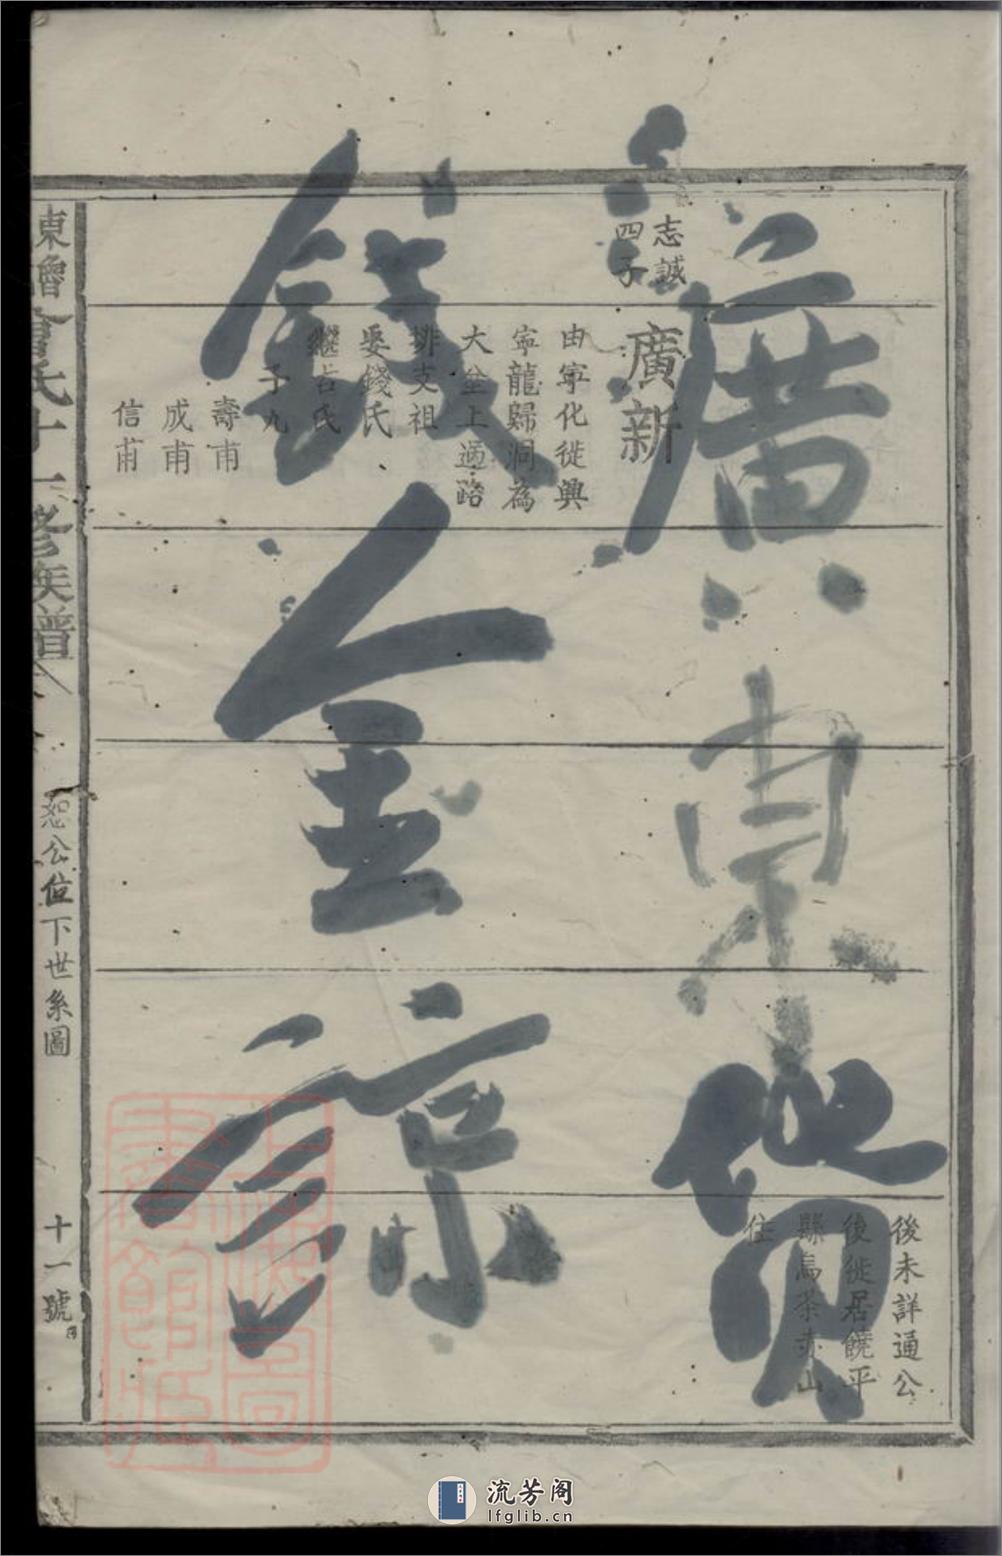 志誠
四子
廣新
由寜化徙興
寜龍歸洞為
大坌上適路
排支祖
娶錢氏
繼古氏
子九
壽甫
成甫
信甫
後未詳通公
後徙居饒平
縣烏茶赤山
住
東魯曾氏十一修族譜
恕公位下世系圖
十一號
廣東
錢金諒
上海圖
書館藏
流芳阁
lfglib.cn